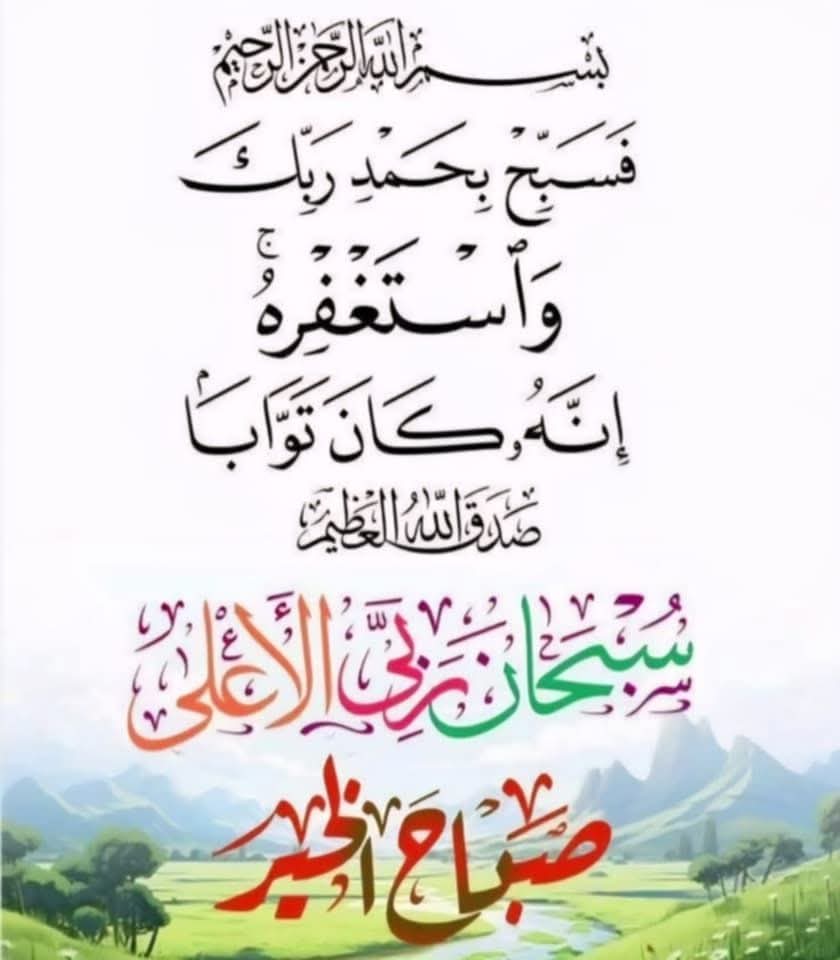 بسم الله الرحمن الرحيم
فَسَبِّحْ بِحَمْدِ رَبِّكَ
وَٱسْتَغْفِرْهُ ۚ
إِنَّهُۥ كَانَ تَوَّابَۢا
صدق الله العظيم
سبحان ربي الأعلى
صباح الخير